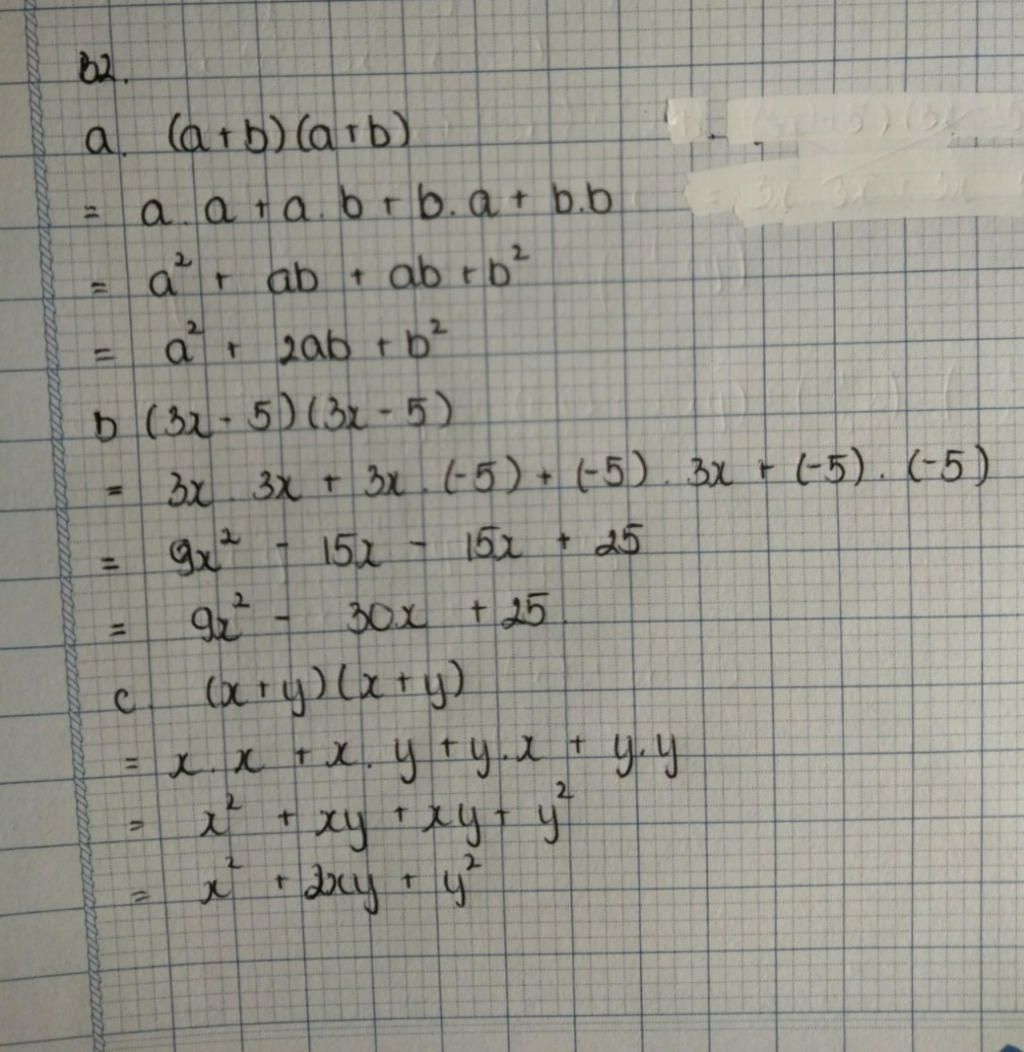 b2.
a. (a+b)(a+b)
= a.a + a.b + b.a + b.b
= a² + ab + ab + b²
= a² + 2ab + b²
b (3x - 5)(3x - 5)
= 3x . 3x + 3x . (-5) + (-5) . 3x + (-5) . (-5)
= 9x² - 15x - 15x + 25
= 9x² - 30x + 25
c. (x+y)(x+y)
= x.x + x.y + y.x + y.y
= x² + xy + xy + y²
= x² + 2xy + y²